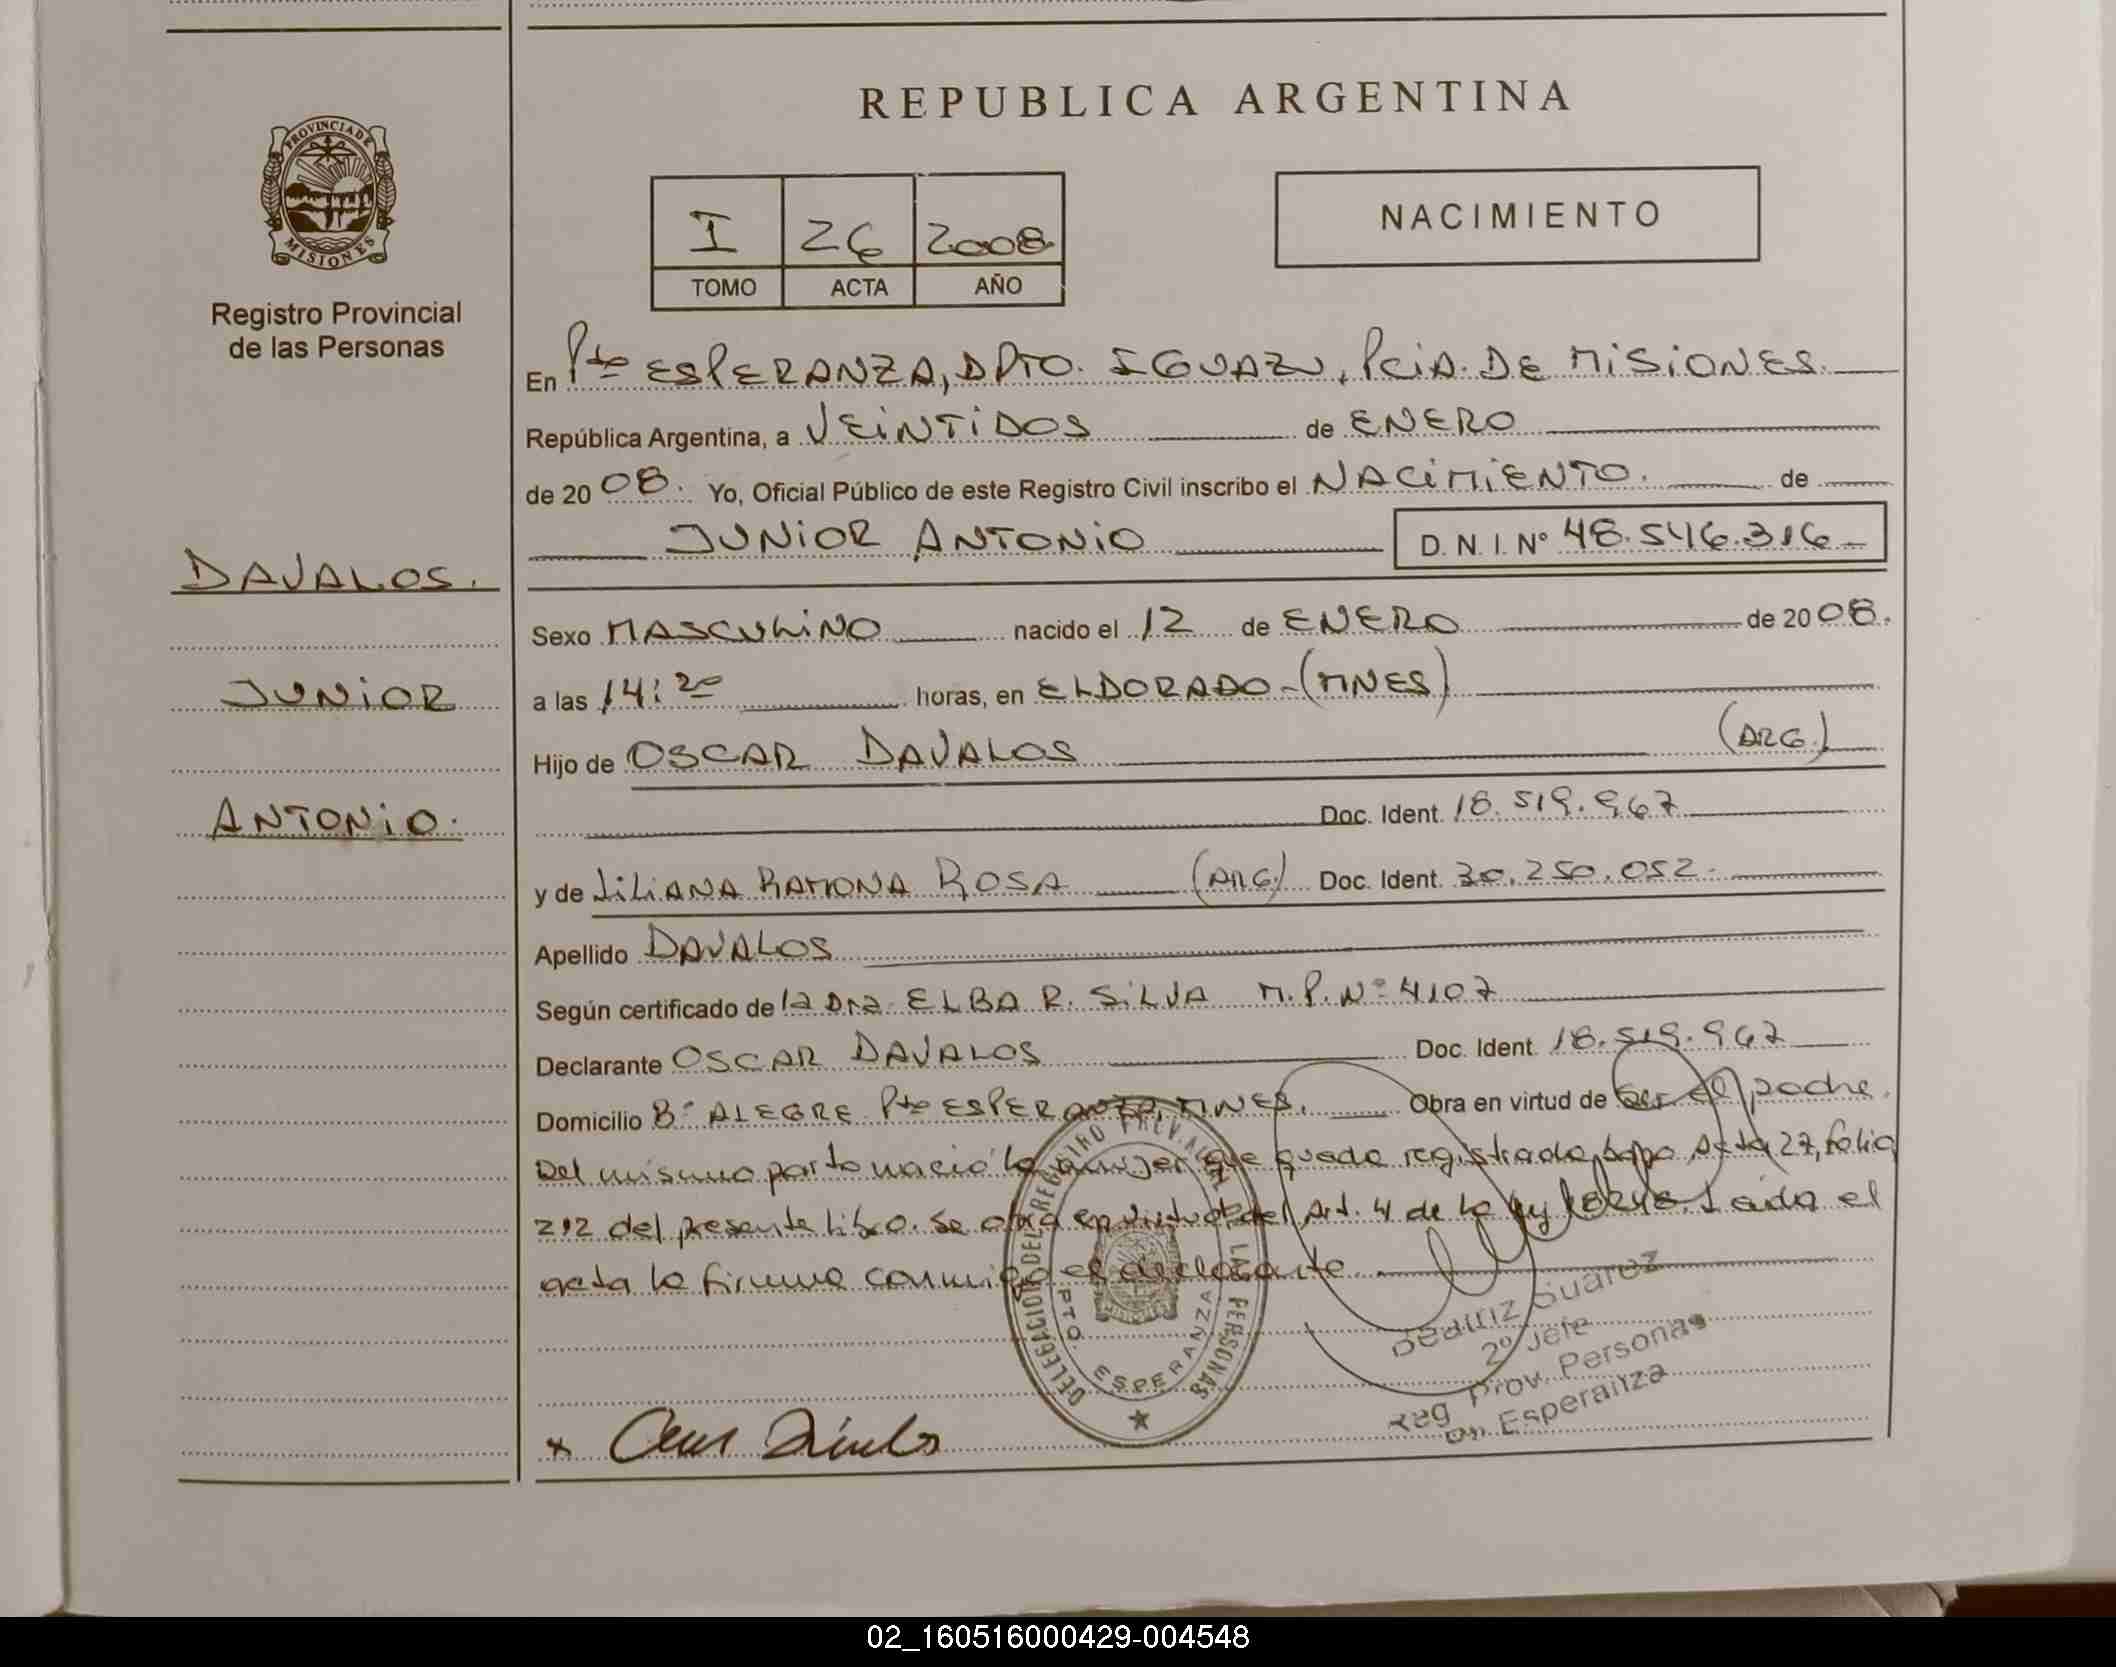 REPUBLICA ARGENTINA
PROVINCIA DE
MISIONES
Registro Provincial
de las Personas
I 26 2008
TOMO ACTA AÑO
NACIMIENTO
En Pto ESPERANZA, DPTO. IGUAZU, PCIA. DE MISIONES.
República Argentina, a VEINTIDOS de ENERO
de 20 08. Yo, Oficial Público de este Registro Civil inscribo el NACIMIENTO. de
JUNIOR ANTONIO D. N. I. Nº 48.546.316
DAVALOS.
JUNIOR
ANTONIO.
Sexo MASCULINO nacido el 12 de ENERO de 20 08.
a las 14:20 horas, en ELDORADO-(MNES)
Hijo de OSCAR DAVALOS (ARG.)
Doc. Ident. 18.519.967
y de LILIANA RAMONA ROSA (ARG.) Doc. Ident. 30.250.052.
Apellido DAVALOS
Según certificado de la Dra. ELBA R. SILVA M.P.Nº 4107
Declarante OSCAR DAVALOS Doc. Ident. 18.519.967
Domicilio Bº ALEGRE Pto ESPERANZA, MNES. Obra en virtud de ser el padre.
Del mismo parto nació la mujer que queda registrada bajo Acta 27, folio
212 del presente libro. Se obra en virtud del Art. 4 de la ley 18248. Leida el
acta la firma conmigo el declarante.
DELEGACION DEL REGISTRO PROVINCIAL DE LAS PERSONAS
PTO. ESPERANZA
Beatriz Suarez
2º Jefe
Reg. Prov. Personas
Esperanza
02_160516000429-004548